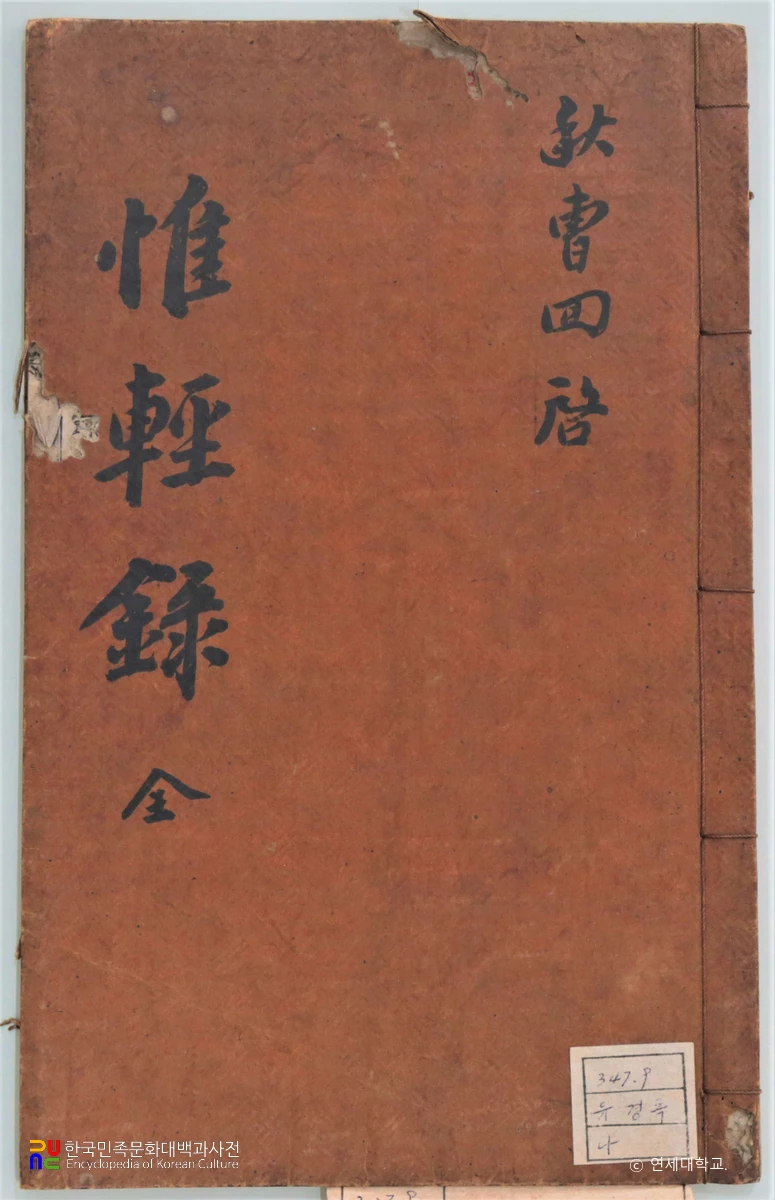 秋曺回啓
惟輕錄 全
347.9
유경록
나
한국민족문화대백과사전
Encyclopedia of Korean Culture
© 연세대학교.